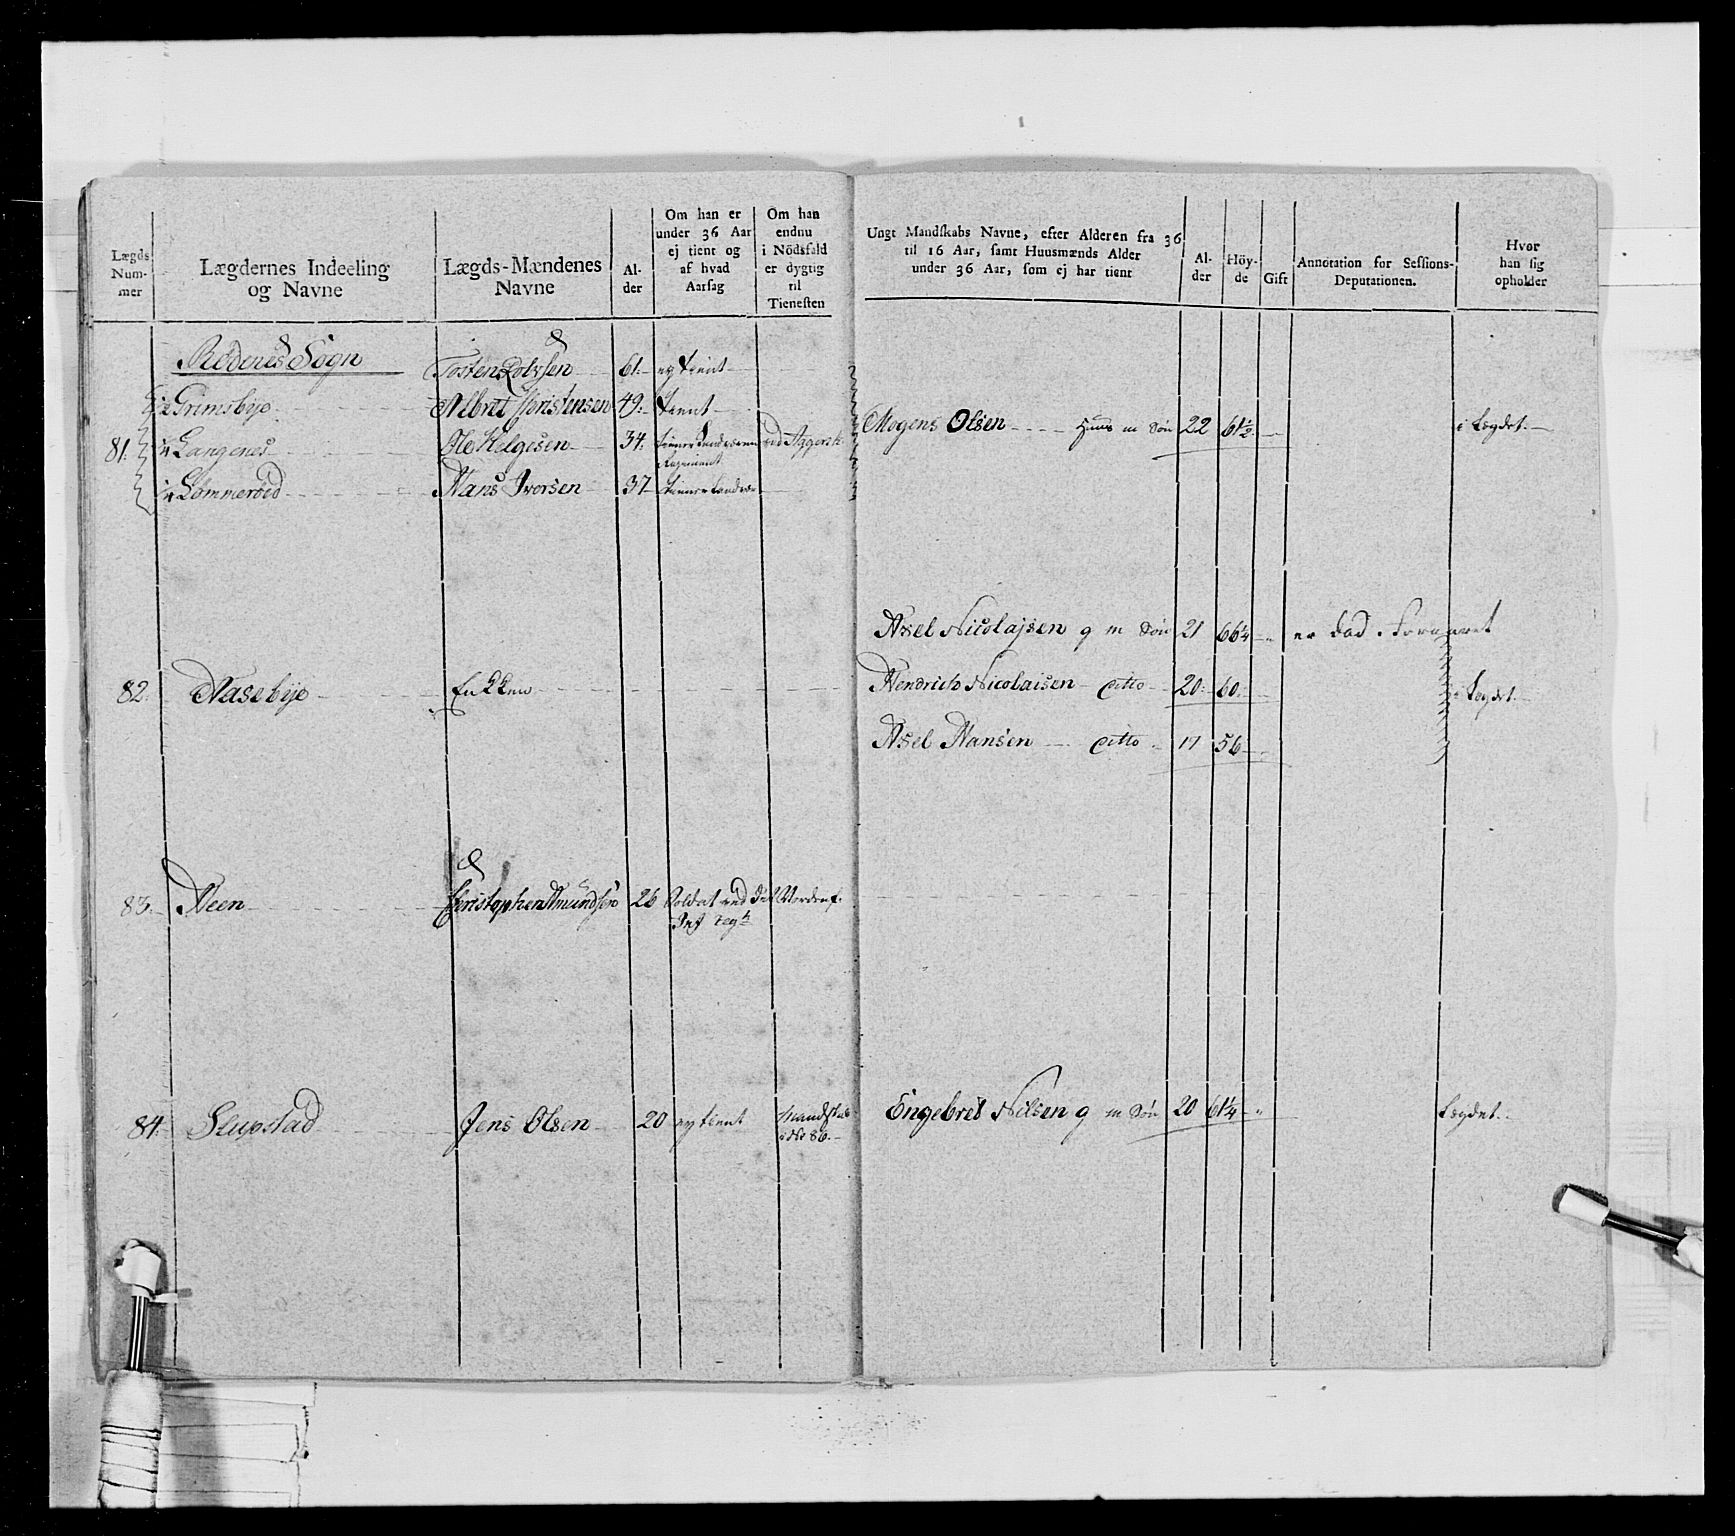 Lægds Num- mer
Lægdernes Indeeling og Navne
Lægds-Mændenes Navne
Al- der
Om han er under 36 Aar ej tient og af hvad Aarsag
Om han endnu i Nödsfald er dygtig til Tienesten
Ungt Mandskabs Navne, efter Alderen fra 36 til 16 Aar, samt Huusmænds Alder under 36 Aar, som ej har tient
Al- der
Höy- de
Gift
Annotation for Sessions- Deputationen.
Hvor han sig opholder
Rødenes Sogn
Tosten Rolvsen 61. ey tient
Grimsbye Albret Christensen 49. tient
81. Langenes Ole Helgesen 34.
Regiment
Mogens Olsen Huus m Søn 22 61½ i Lægdet
Lømmerød Hans Iversen 37
Axel Nicolajsen g m Søn 21 66¼ er død
82. Hasebye Enke
Hendrich Nicolaisen ditto 20. 60. i Lægdet
Axel Hansen ditto 17 56
83. Heen Christopher Amundsen 26 Soldat ved det Nordenf.
Inf regt
84. Slupstad Jens Olsen 20 ey tient Mandskab
i No 86.
Engebret Nilsen g m Søn 20 61¼ Lægdet